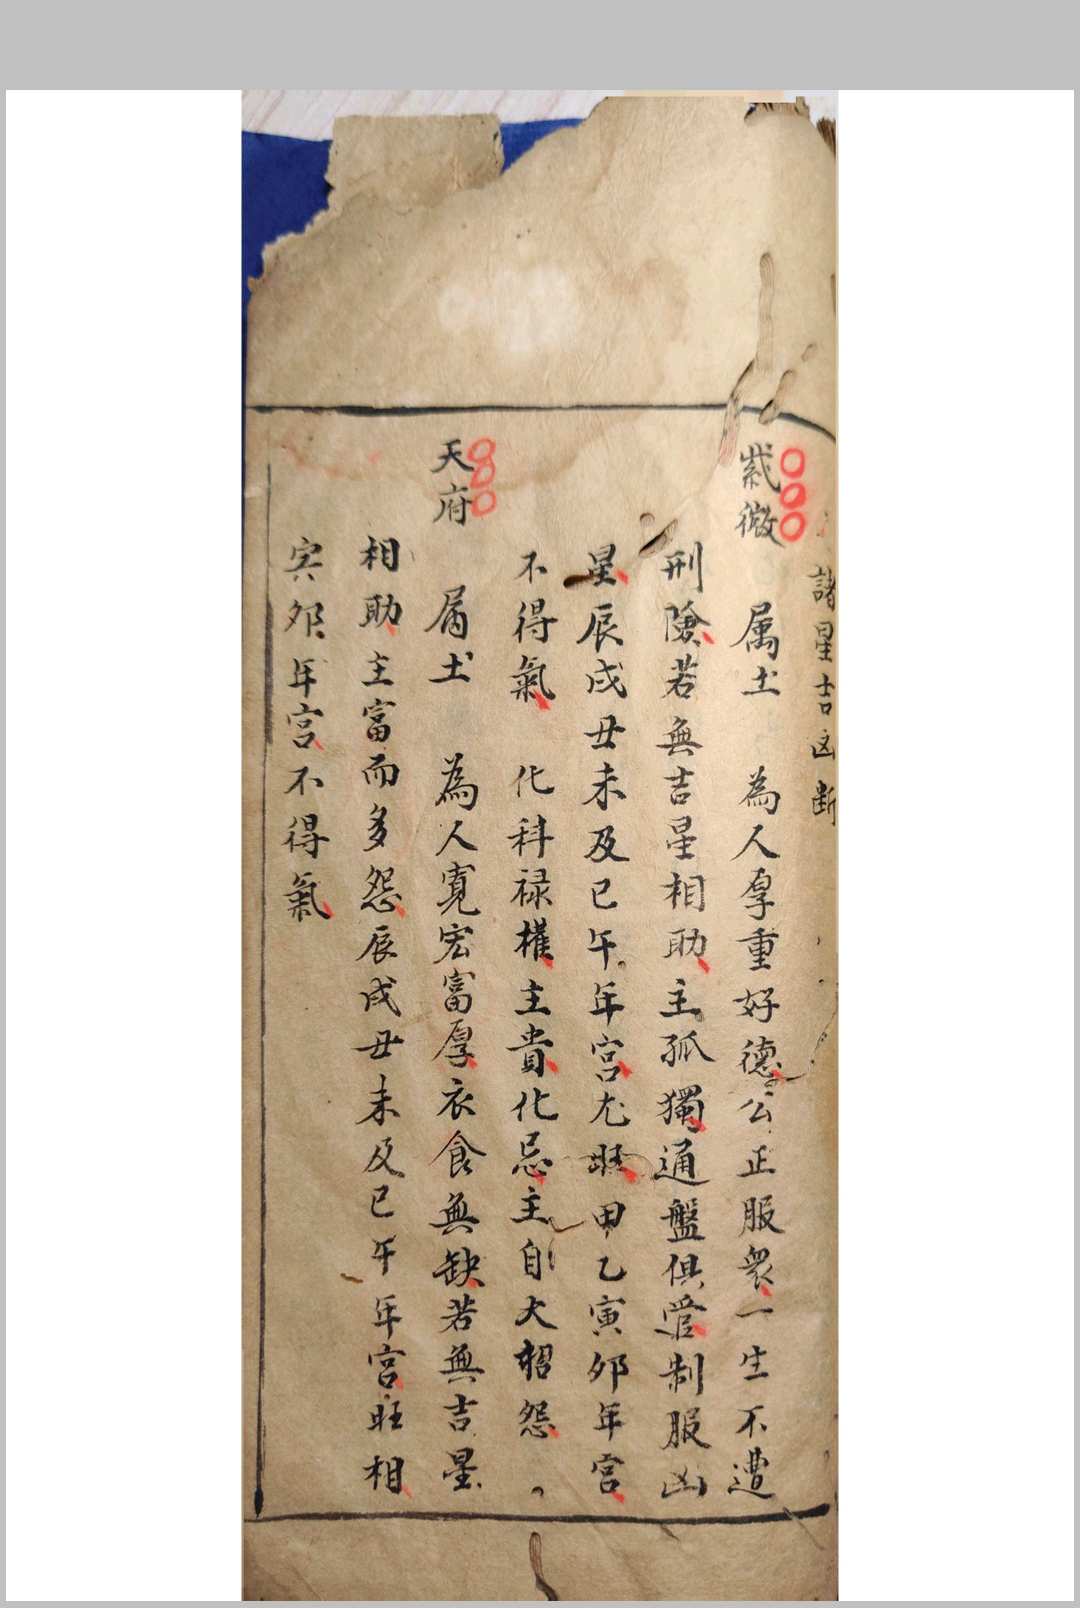 諸星吉凶断
紫微　属土　為人厚重好德公正服衆一生不遭
刑險若無吉星相助主孤獨通盤俱管制服凶
星辰戌丑未及巳午年宮尤旺甲乙寅夘年宮
不得氣　化科禄權主貴化忌主自大招怨
天府　属土　為人寬宏富厚衣食無缺若無吉星
相助主富而多怨辰戌丑未及巳午年宮旺相
寅夘年宮不得氣